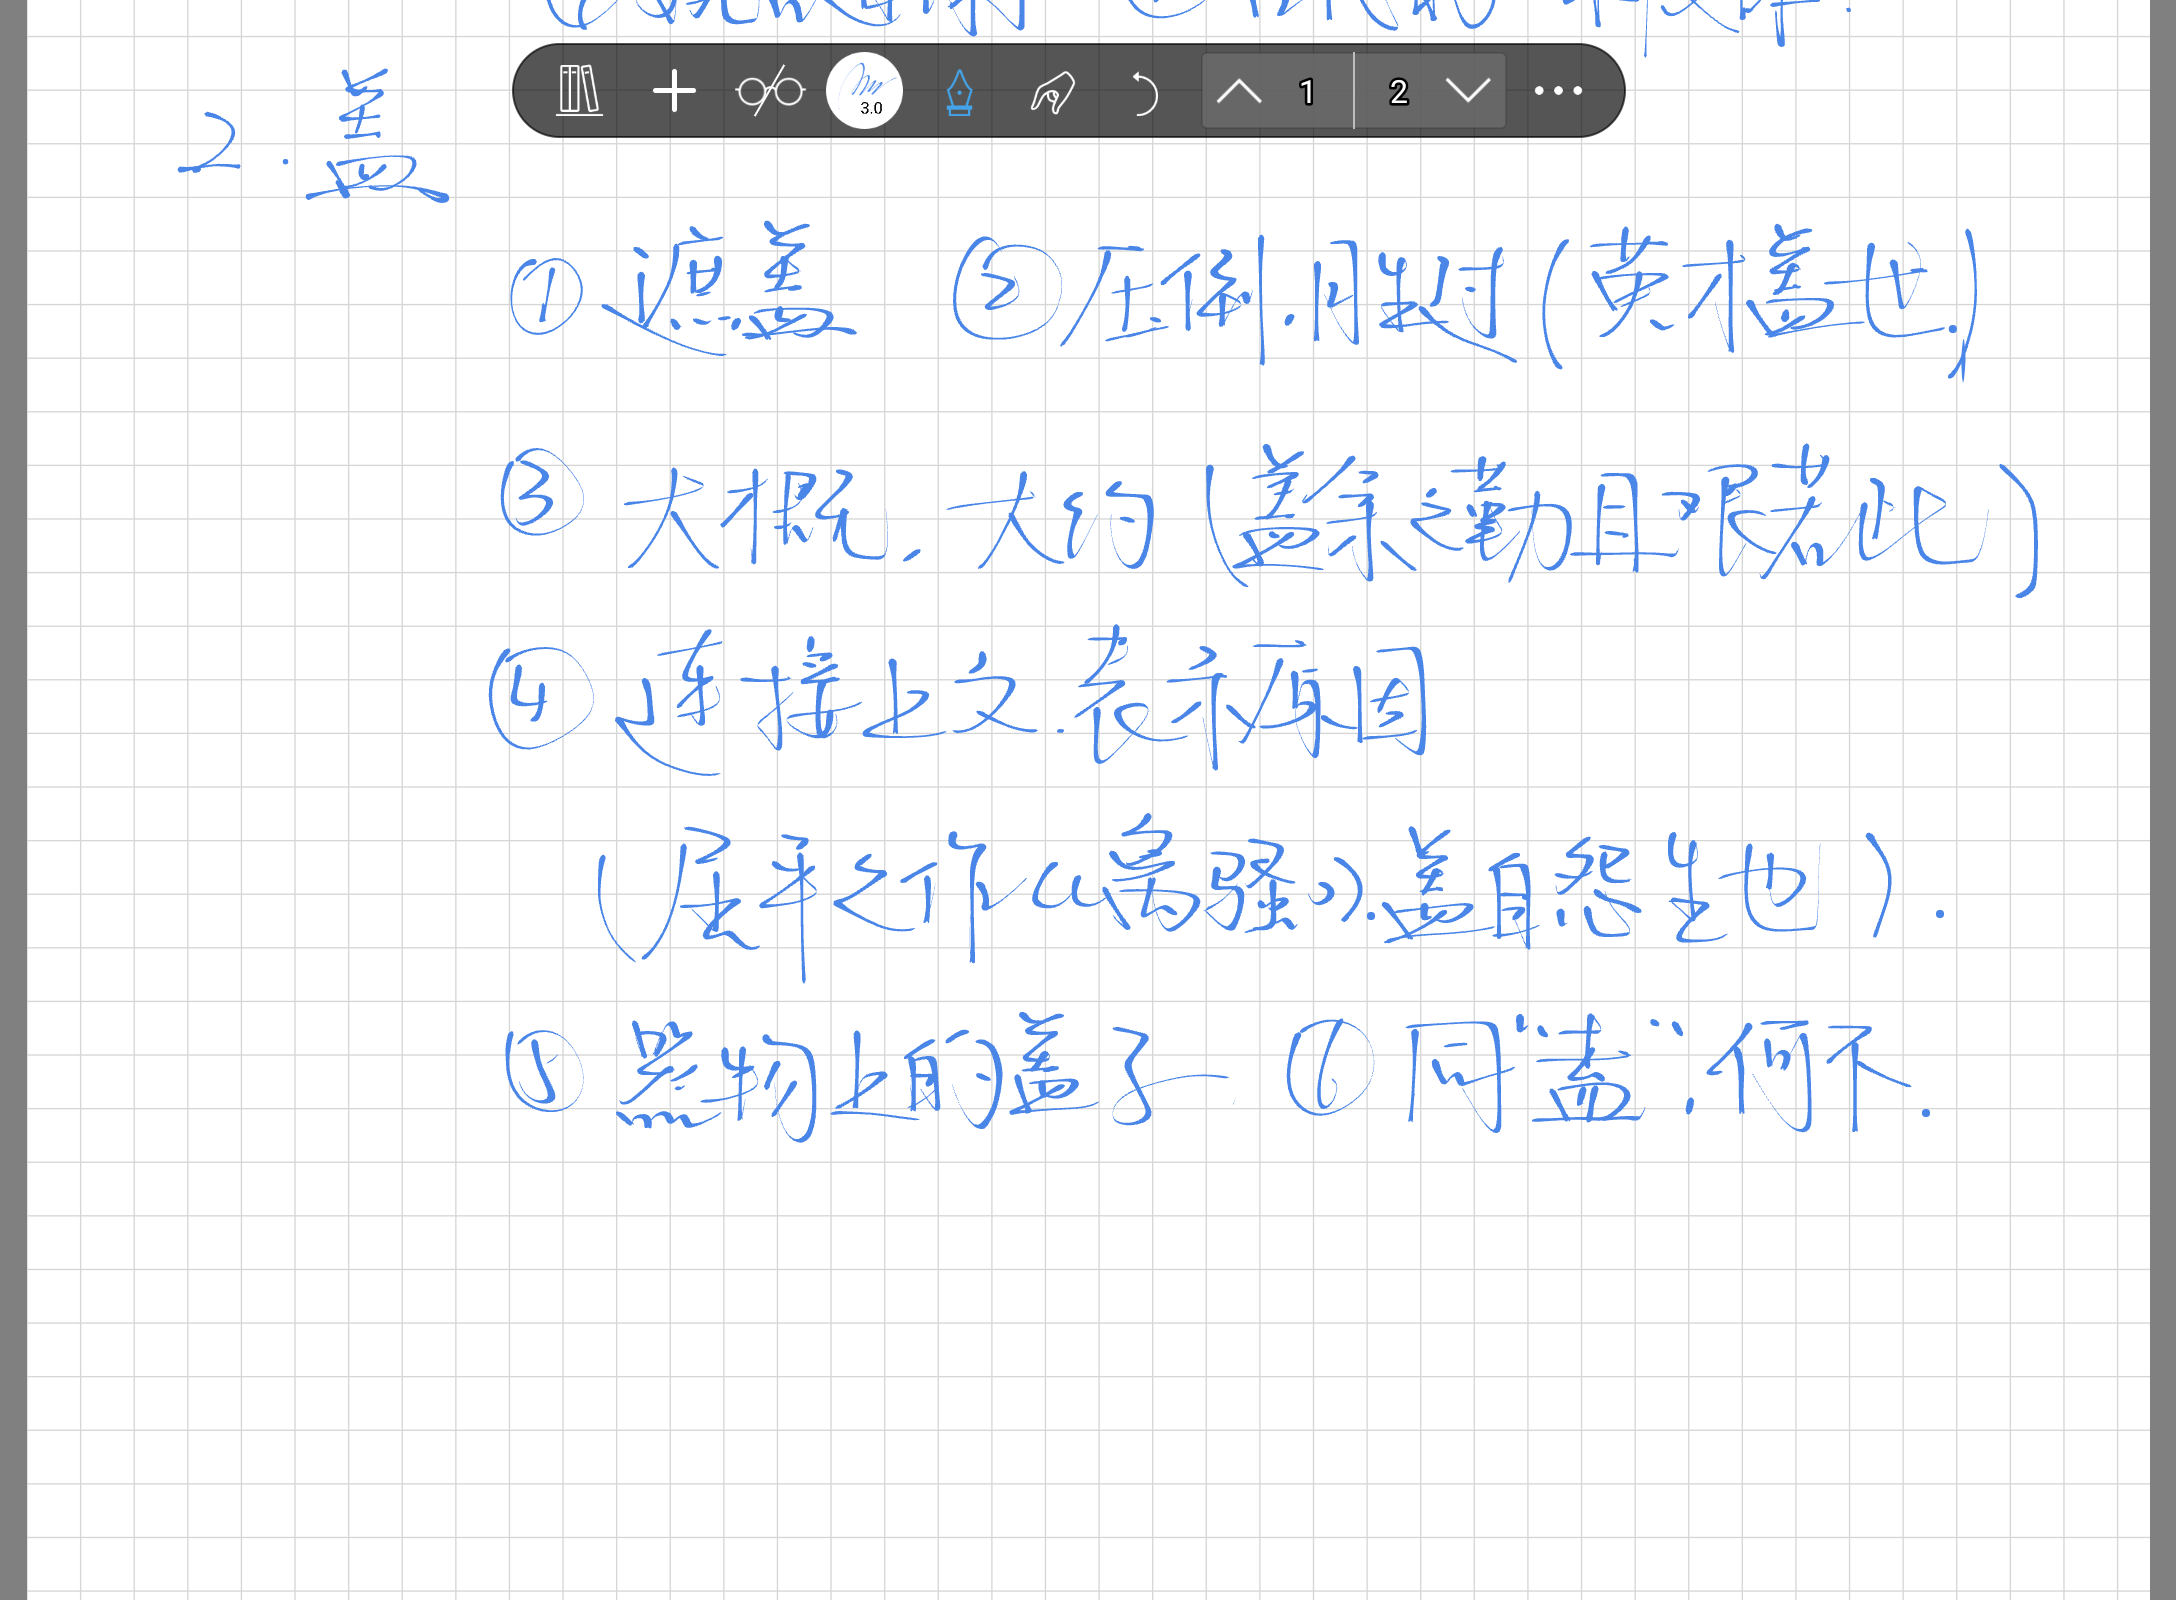 3.0 1 2
2.盖
①遮盖 ②压倒.胜过(英才盖世.)
③大概.大约(盖余之勤且艰若此)
④连接上文.表示原因
(屈平之作《离骚》.盖自怨生也).
⑤器物上的盖子 ⑥同“盍”,何不.